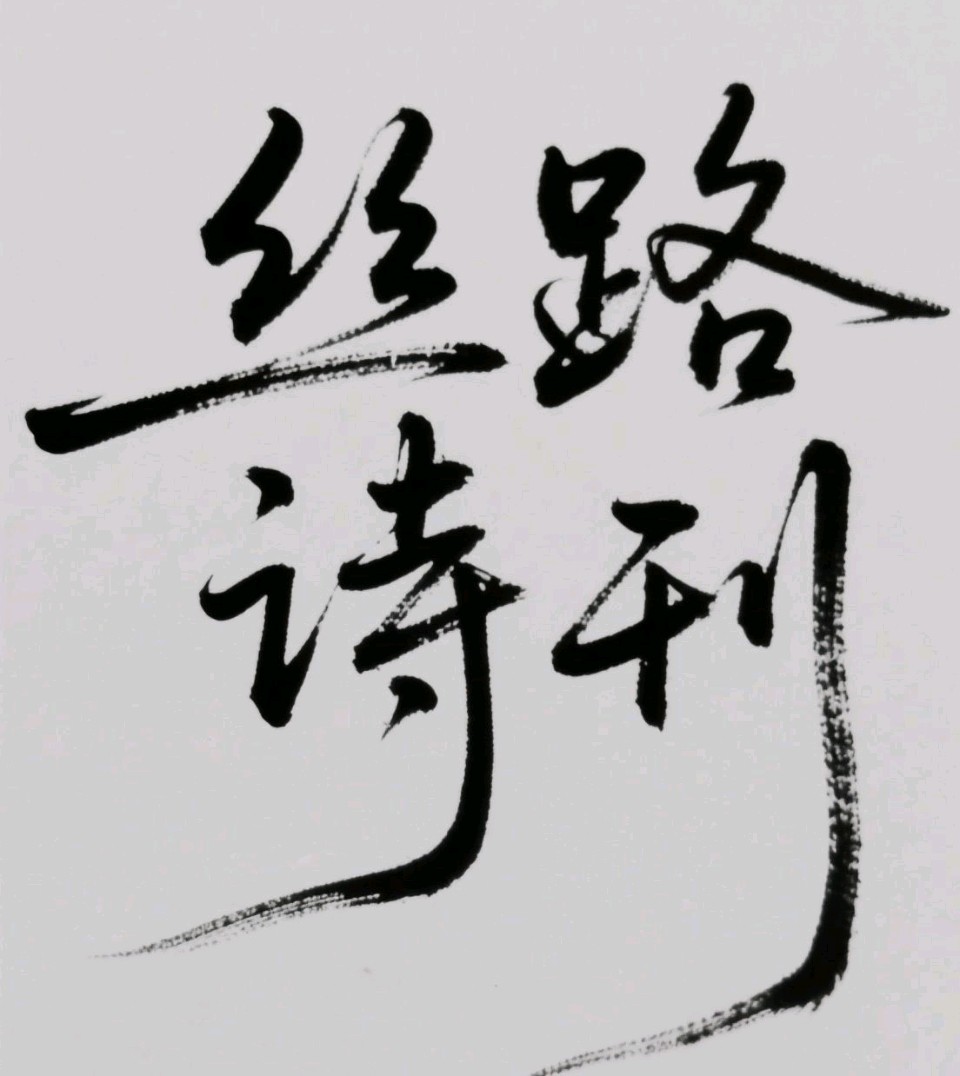 丝路
诗刊